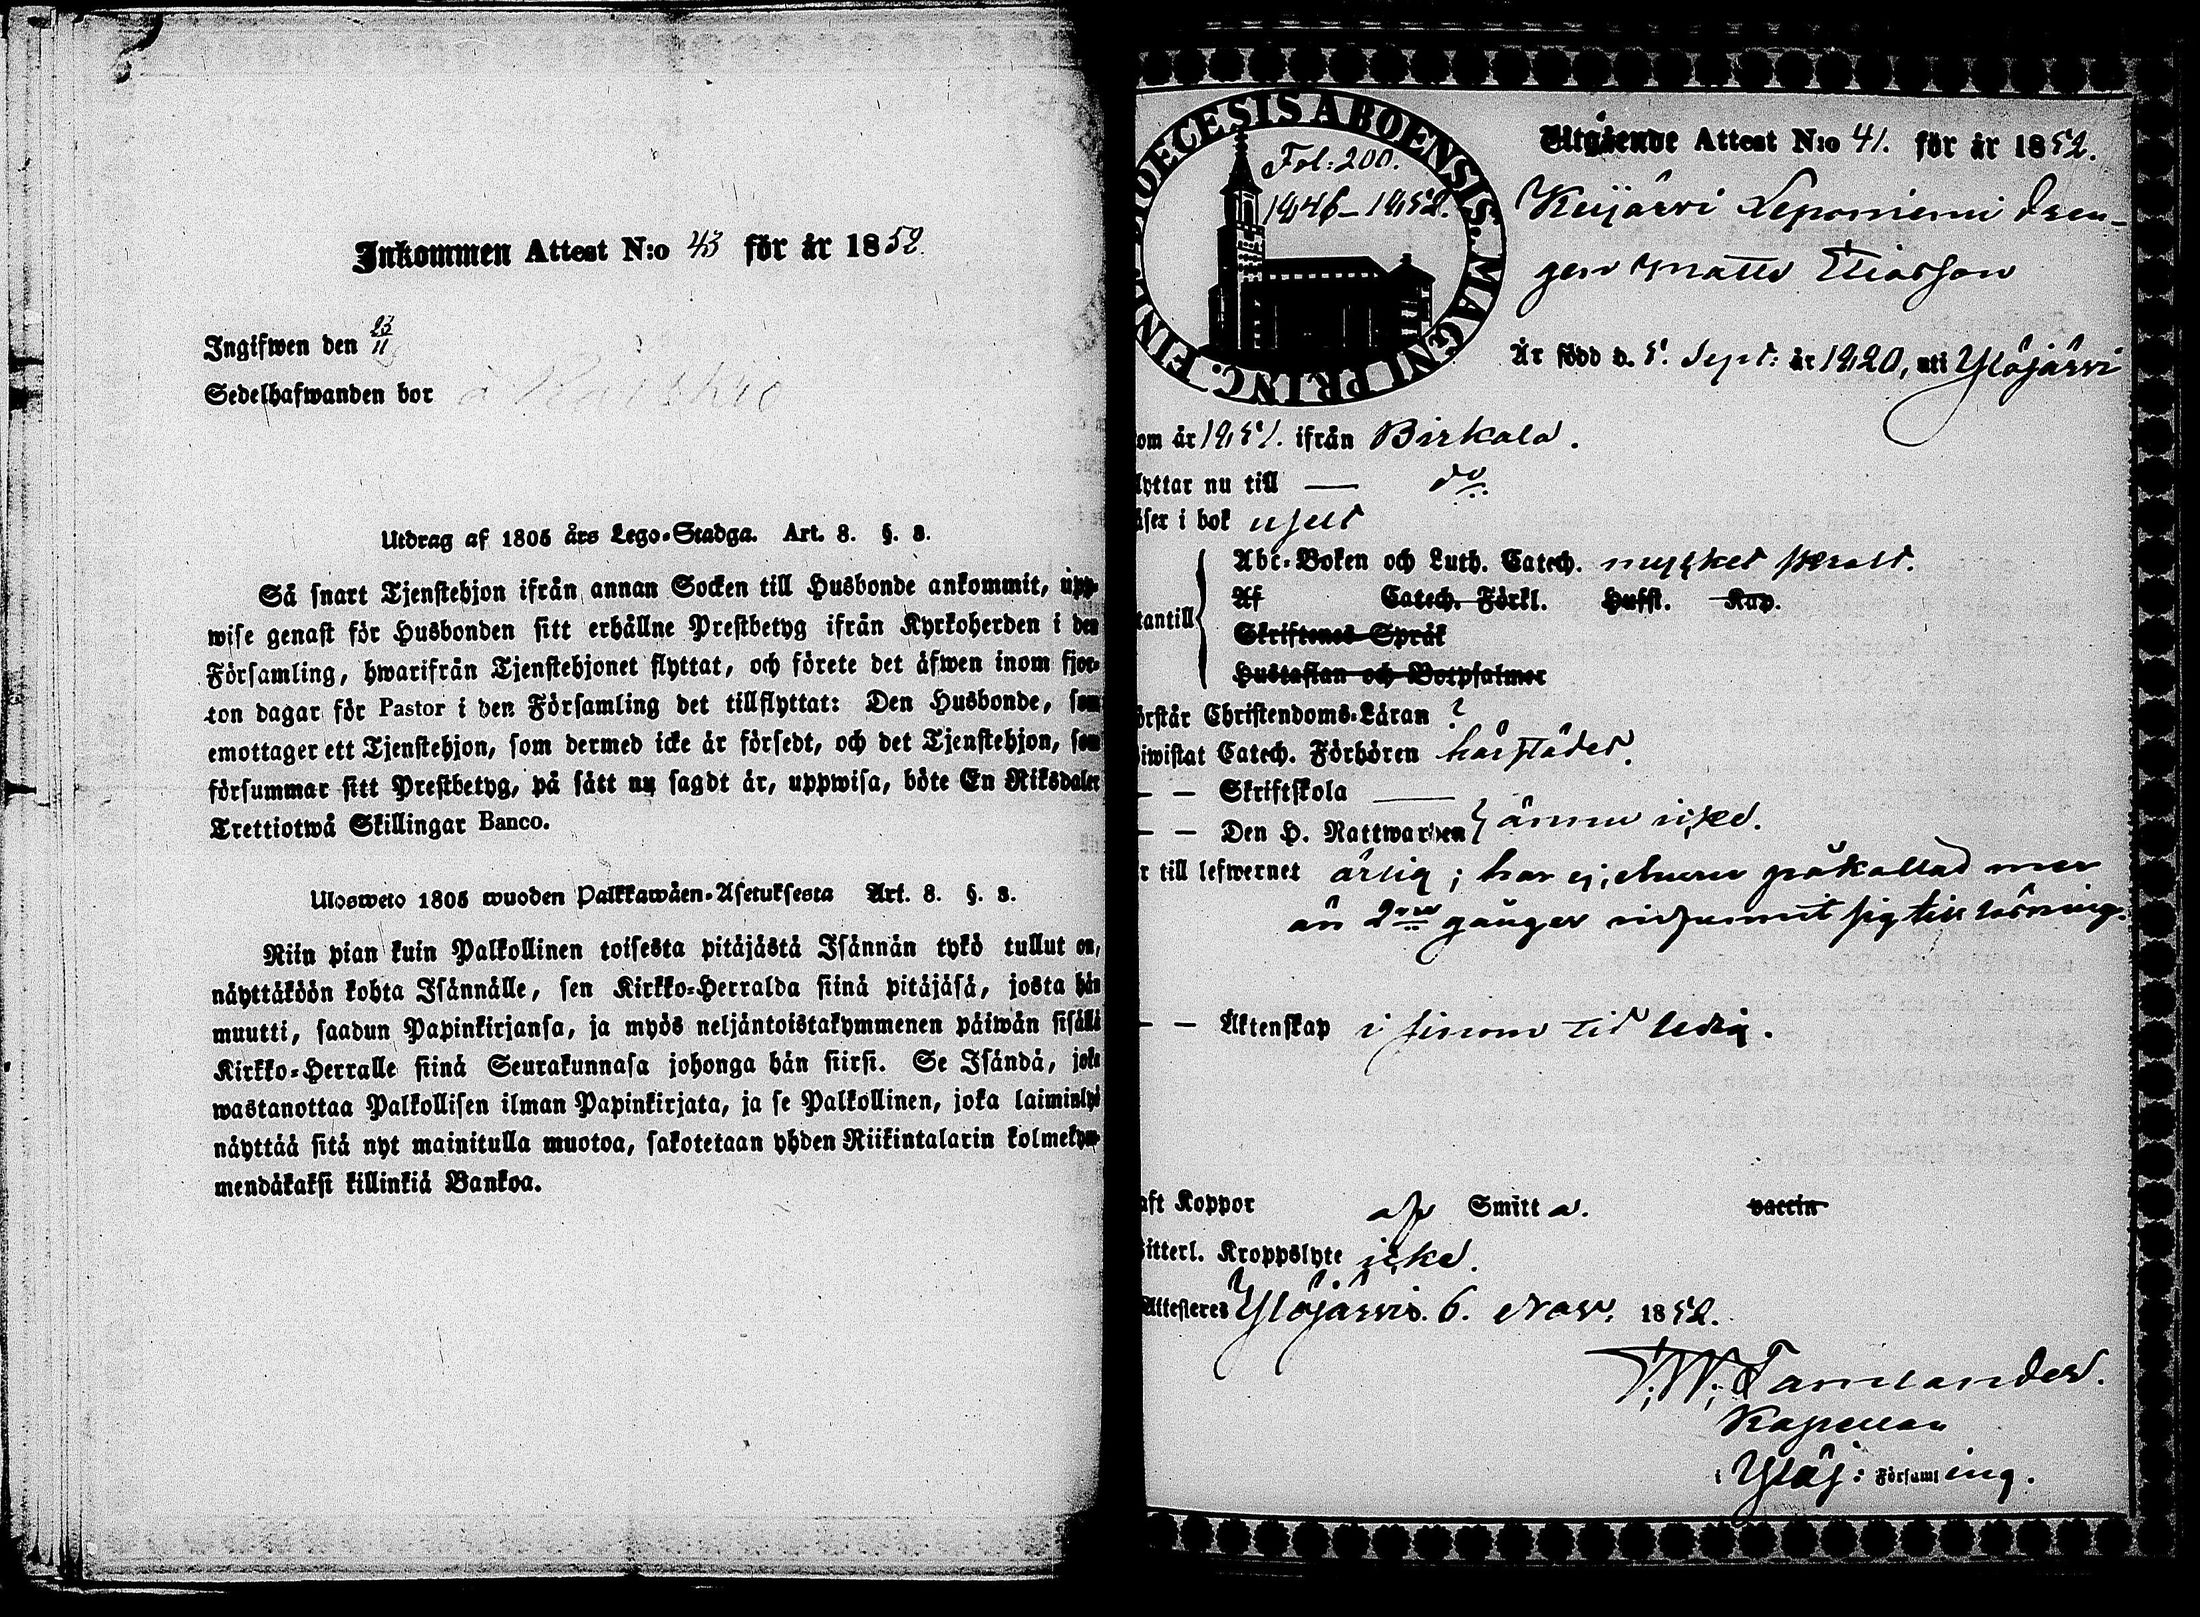 Inkommen Attest N:o 43 för år 1852.
Ingifwen den 23/11
Sedelhafwanden bor å
Utdrag af 1805 års Lego-Stadga. Art. 8. §. 3.
Så snart Tjenstehjon ifrån annan Socken till Husbonde ankommit, upp-
wise genast för Husbonden sitt erhållne Prestbetyg ifrån Kyrkoherden i den
Församling, hwarifrån Tjenstehjonet flyttat, och förete det äfwen inom fjor-
ton dagar för Pastor i den Församling det tillflyttat: Den Husbonde, som
emottager ett Tjenstehjon, som dermed icke är försedt, och det Tjenstehjon, som
försummar sitt Prestbetyg, på sätt nu sagdt är, uppwisa, böte En Riksdaler
Trettiotwå Skillingar Banco.
Ulosweto 1805 wuoden Palkkawäen-Asetuksesta Art. 8. §. 3.
Niin pian kuin Palkollinen toisesta pitäjästä Isännän tykö tullut on,
näyttäköön kohta Isännälle, sen Kirkko-Herralda siinä pitäjäsä, josta hän
muutti, saadun Papinkirjansa, ja myös neljäntoistakymmenen päiwän sisällä
Kirkko-Herralle siinä Seurakunnasa johonga hän siirsi. Se Isändä, joka
wastanottaa Palkollisen ilman Papinkirjata, ja se Palkollinen, joka laiminlyö
näyttää sitä nyt mainitulla muotoa, sakotetaan yhden Riikintalarin kolmekym-
mendäkaksi killinkiä Bankoa.
DIOECESIS ABOENSIS. MAGNI PRINC. FINL
Fol: 200.
1846–1852.
Utgående Attest N:o 41. för år 1852.
Keijärvi Leponiemi dren-
gen Matts Eliasson
Är född d. 5. Sept: år 1820, uti Ylöjärvi
om år 1851. ifrån Birkala.
lyttar nu till — do.
äser i bok uselt
Abc-Boken och Luth. Catech. mycket svalt.
tantill
Af Catech. Förkl. Hufst. Kap.
Skriftenes Språk
Hustaflan och Botpsalmer
örstår Christendoms-Läran ?
iwistat Catech. Förhören härstädes.
— — Skriftskola —
— — Den H. Nattwarden } ännu icke.
r till lefwernet ärlig; har ej, ehuru påkallad mer
än 2ne gånger infunnit sig till läsning.
— — Äktenskap i sinom tid ledig.
aft Koppor af Smitta. vaccin
itterl. Kroppslyte icke.
Attesteres Ylöjärvi d. 6. Nov. 1852.
Tamlander.
Kapellan
i Ylöj: Församling.